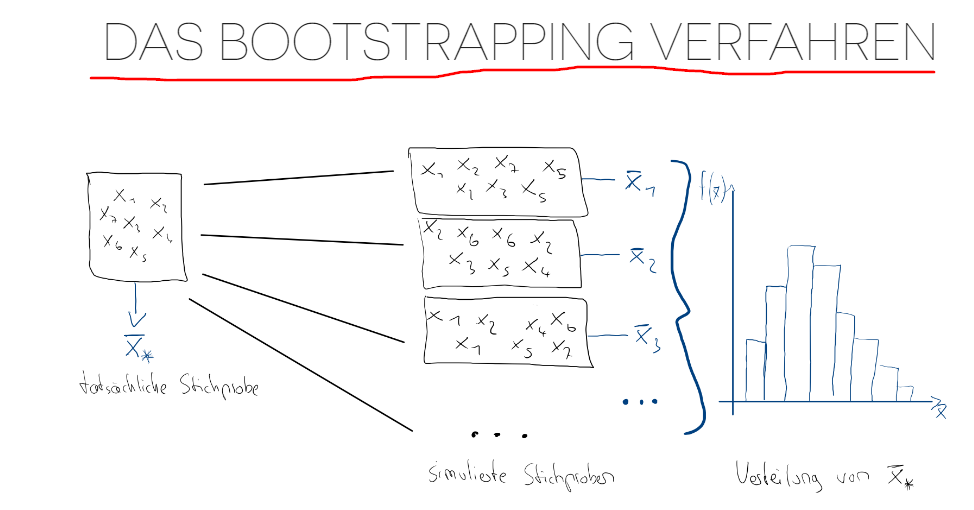 DAS BOOTSTRAPPING VERFAHREN
x₁ x₂
x₇ x₃ x₄
x₆ x₅
x̄*
tatsächliche Stichprobe
x₁ x₂ x₇ x₅
x₂ x₃ x₅
x̄₁
x₂ x₆ x₆ x₂
x₃ x₅ x₄
x̄₂
x₁ x₂ x₄ x₆
x₁ x₅ x₇
x̄₃
...
...
simulierte Stichproben
f(x̄)
x̄
Verteilung von x̄*